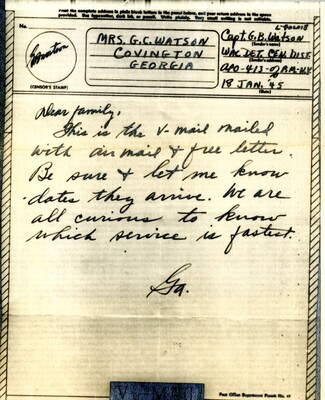 Print the complete address in plain block letters in the panel below, and your return address in the space
provided. Use typewriter, dark ink, or pencil. Write plainly. Very small writing is not suitable.
No.
(CENSOR'S STAMP)
MRS. G. C. WATSON
COVINGTON
GEORGIA
Capt. G. B. Watson
(Sender's name)
WAC DET. CEN. DISE
(Sender's address)
APO-413-
18 JAN. '45
(Date)
Dear family,
This is the V-mail mailed
with air mail & free letter.
Be sure & let me know
dates they arrive. We are
all curious to know
which service is fastest.
Ga.
V-MAIL